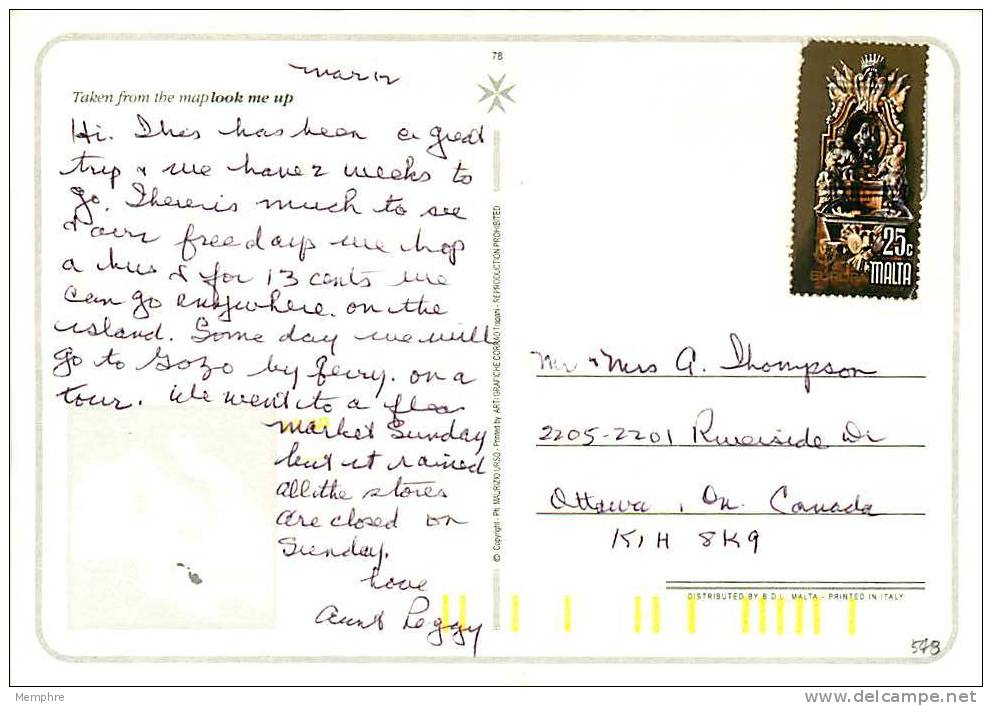 78
Mar 12
Taken from the map look me up
Hi. This has been a great
trip & we have 2 weeks to
go. There is much to see
& our free days we hop
a bus & for 13 cents we
can go anywhere on the
island. Some day we will
go to Gozo by ferry. on a
tour. We went to a flea
market Sunday
but it rained
all the stores
are closed on
Sunday.
Love
Aunt Peggy
© Copyright - Ph: MAURIZIO URSO - Printed by ARTI GRAFICHE CORRAO Trapani - REPRODUCTION PROHIBITED
25c
MALTA
Mr & Mrs A. Thompson
2205-2201 Riverside Dr
Ottawa, On. Canada
K1H 8K9
DISTRIBUTED BY B.D.L. MALTA - PRINTED IN ITALY
548
Memphre
http://www.delcampe.net